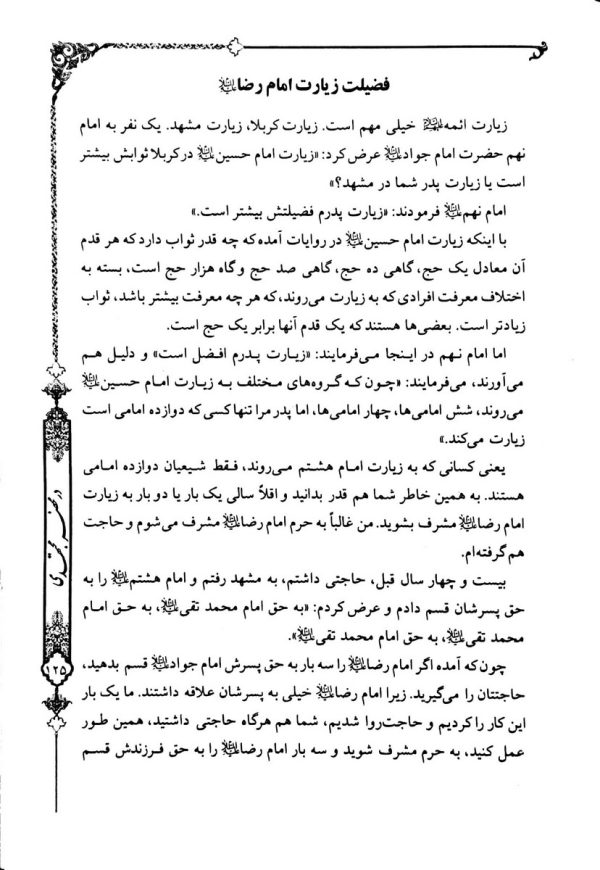 فضیلت زیارت امام رضا﷣
زیارت ائمه﷨ خیلی مهم است. زیارت کربلا، زیارت مشهد. یک نفر به امام
نهم حضرت امام جواد﷣ عرض کرد: «زیارت امام حسین﷣ در کربلا ثوابش بیشتر
است یا زیارت پدر شما در مشهد؟»
امام نهم﷣ فرمودند: «زیارت پدرم فضیلتش بیشتر است.»
با اینکه زیارت امام حسین﷣ در روایات آمده که چه قدر ثواب دارد که هر قدم
آن معادل یک حج، گاهی ده حج، گاهی صد حج و گاه هزار حج است، بسته به
اختلاف معرفت افرادی که به زیارت می‌روند، که هر چه معرفت بیشتر باشد، ثواب
زیادتر است. بعضی‌ها هستند که یک قدم آنها برابر یک حج است.
اما امام نهم در اینجا می‌فرمایند: «زیارت پدرم افضل است» و دلیل هم
می‌آورند، می‌فرمایند: «چون که گروه‌های مختلف به زیارت امام حسین﷣
می‌روند، شش امامی‌ها، چهار امامی‌ها، اما پدر مرا تنها کسی که دوازده امامی است
زیارت می‌کند.»
یعنی کسانی که به زیارت امام هشتم می‌روند، فقط شیعیان دوازده امامی
هستند. به همین خاطر شما هم قدر بدانید و اقلاً سالی یک بار یا دو بار به زیارت
امام رضا﷣ مشرف بشوید. من غالباً به حرم امام رضا﷣ مشرف می‌شوم و حاجت
هم گرفته‌ام.
بیست و چهار سال قبل، حاجتی داشتم، به مشهد رفتم و امام هشتم﷣ را به
حق پسرشان قسم دادم و عرض کردم: «به حق امام محمد تقی﷣، به حق امام
محمد تقی﷣، به حق امام محمد تقی﷣».
چون که آمده اگر امام رضا﷣ را سه بار به حق پسرش امام جواد﷣ قسم بدهید،
حاجتتان را می‌گیرید. زیرا امام رضا﷣ خیلی به پسرشان علاقه داشتند. ما یک بار
این کار را کردیم و حاجت‌روا شدیم، شما هم هرگاه حاجتی داشتید، همین طور
عمل کنید، به حرم مشرف شوید و سه بار امام رضا﷣ را به حق فرزندش قسم
در محضر مجتهدی
۱۲۵